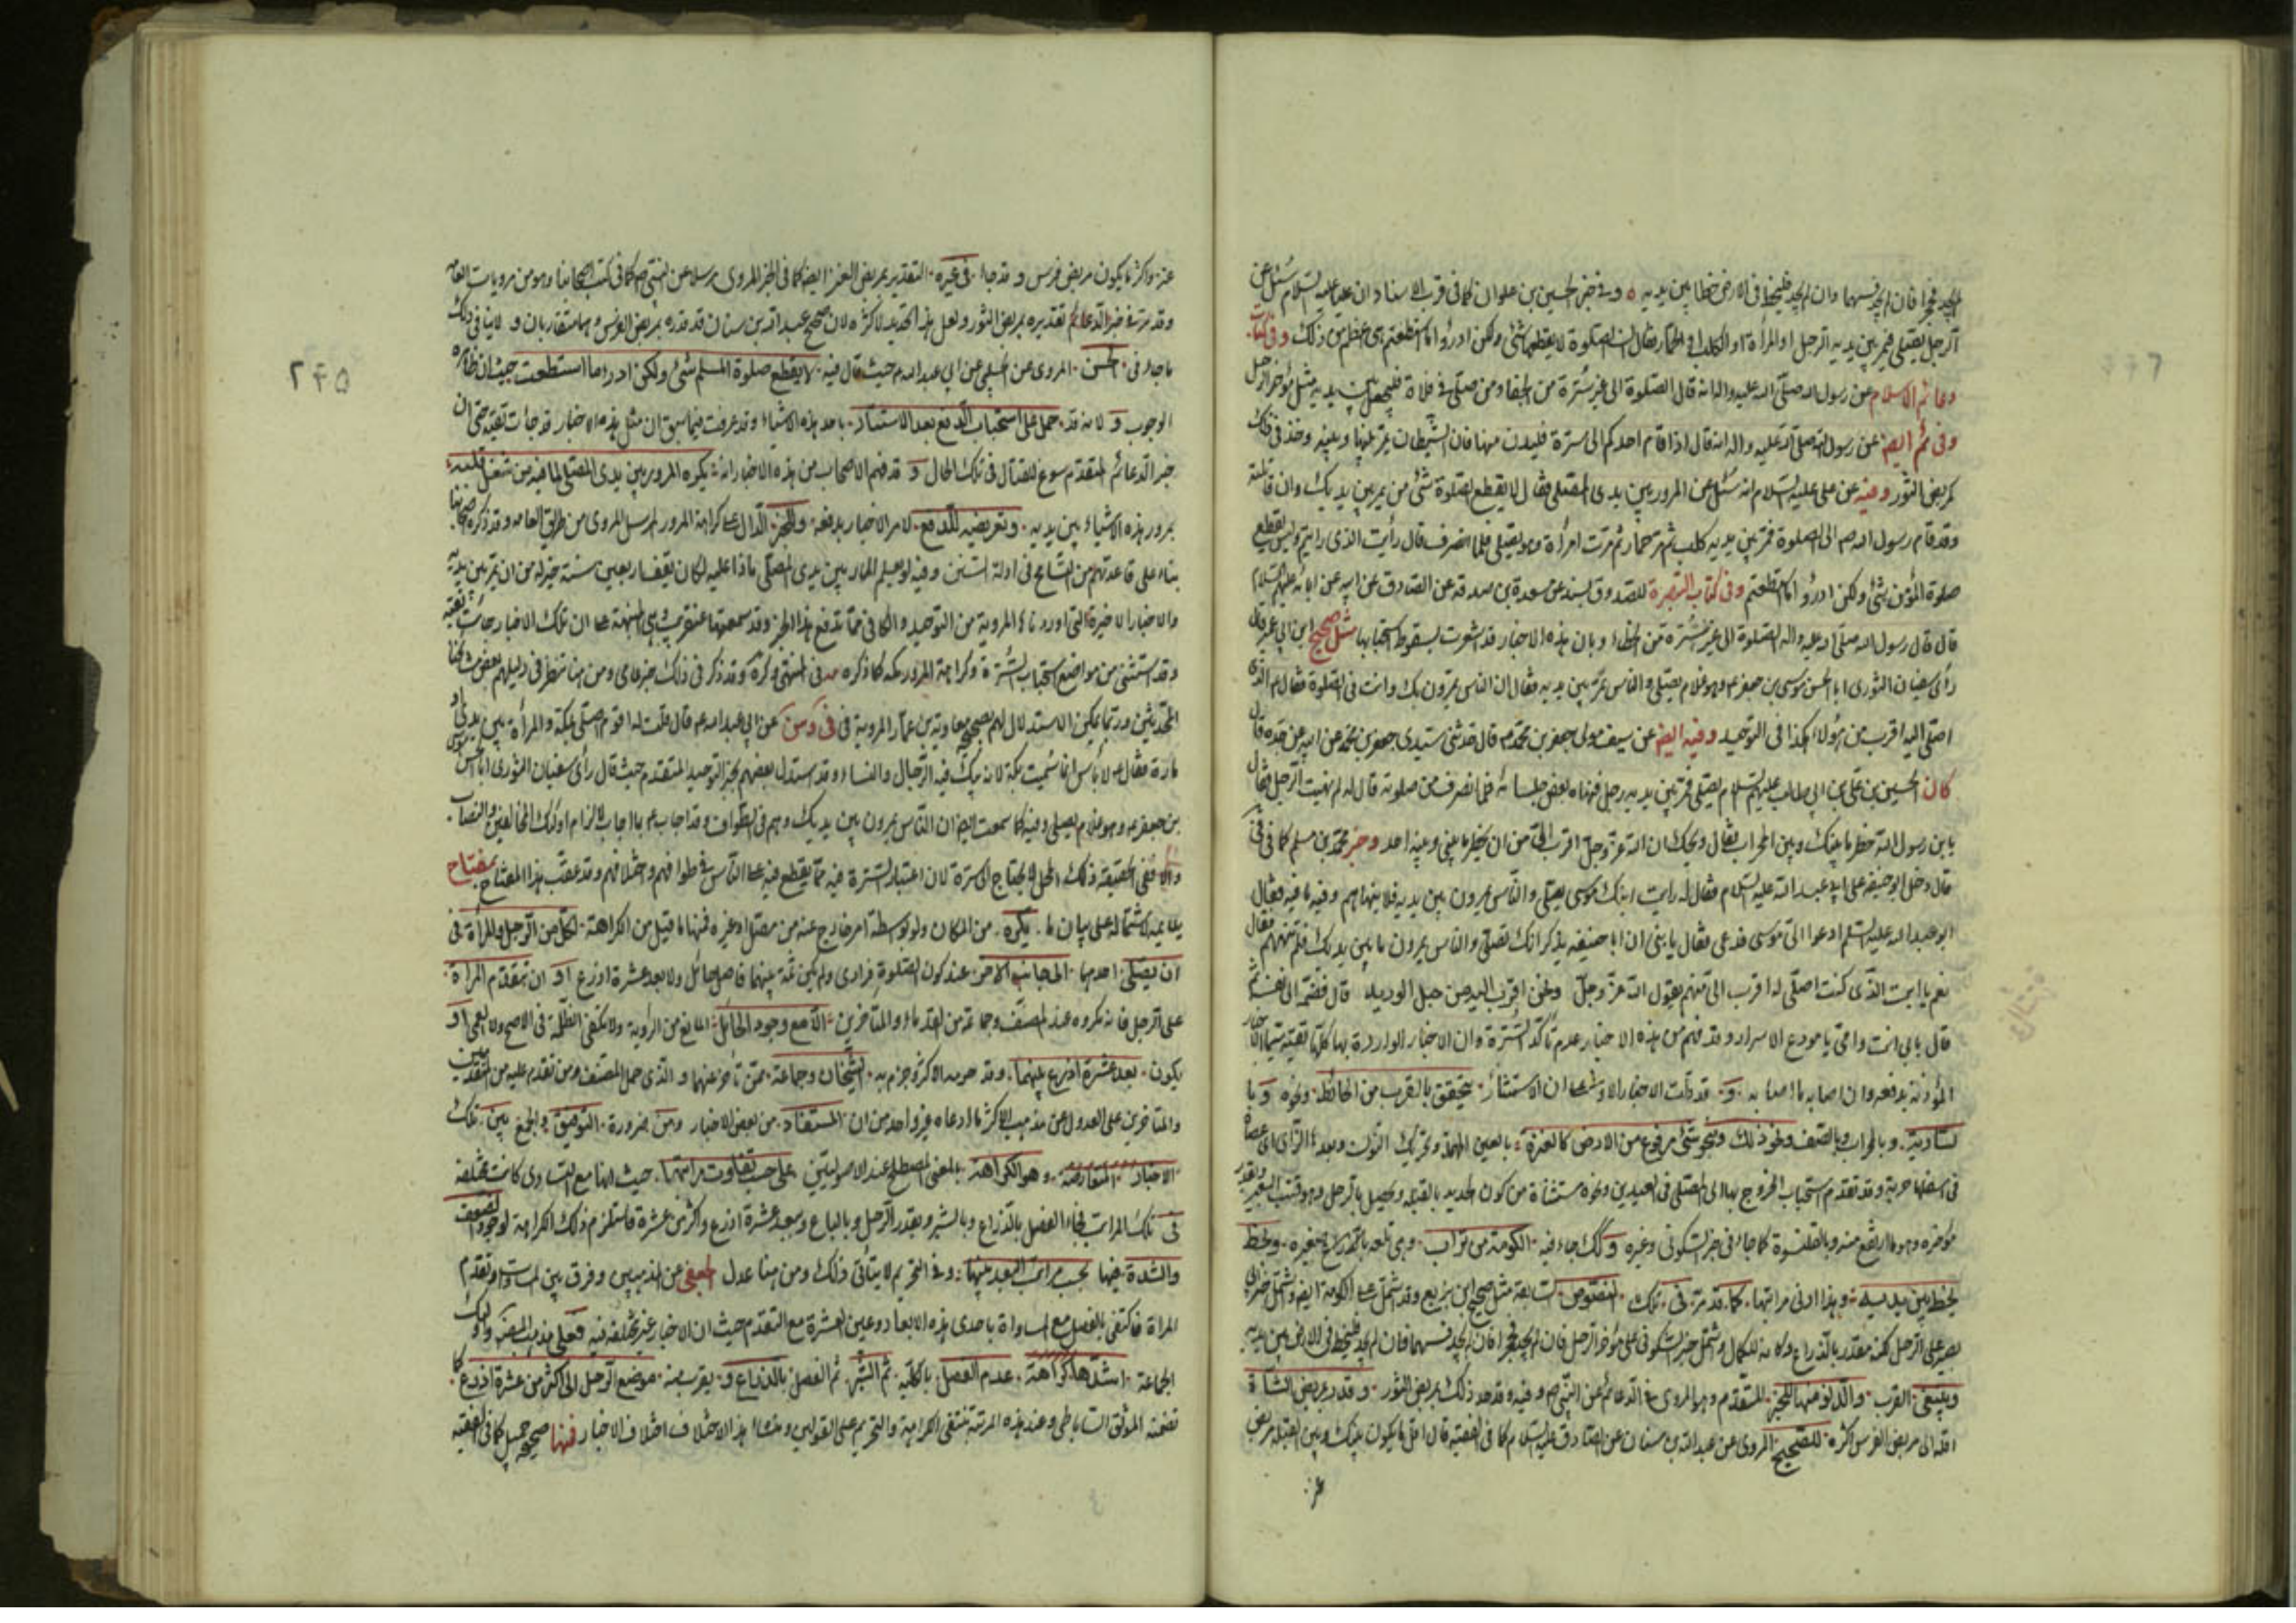 لم يجد حجرا فان لم يجد فسهما وان لم يجد فليخط في الارض خطا بين يديه وفي خبر الحسين بن علوان كما في قرب الاسناد ان عليا عليه السلام سئل عن
الرجل يصلي فيمر بين يديه الرجل او المرأة او الكلب او الحمار فقال ان الصلوة لا يقطعها شئ ولكن ادرؤا ما استطعتم هي اعظم من ذلك وفي كتاب
دعائم الاسلام عن رسول الله صلى الله عليه واله انه قال الصلوة الى غير سترة من الجفا ومن صلى في فلاة فليجعل بين يديه مثل مؤخر الرحل
وفي ئم ايضا عن رسول الله صلى الله عليه واله انه قال اذا قام احدكم الى سترة فليدن منها فان الشيطان يمر بينها وبينه وحد في ذلك
كمربض الثور وفيه عن علي عليه السلام انه سئل عن المرور بين يدى المصلي فقال لا يقطع الصلوة شئ من يمر بين يديك وان قاتلته
وقد قام رسول الله ص الى الصلوة فمر بين يديه كلب ثم مر حمار ثم مرت امرأة وهو يصلي فلما انصرف قال رأيت الذى رايتم وليس يقطع
صلوة المؤمن شئ ولكن ادرؤا ما استطعتم وفي كتاب التبصرة للصدوق بسند عن مسعدة بن صدقة عن الصادق عن ابيه عن ابائه عليهم السلام
قال قال رسول الله صلى الله عليه واله الصلوة الى غير سترة من الجفاء وبان هذه الاخبار قد اشعرت بسقوط استحبابها مثل صحيح ابن ابي عمير قال
رأى سفيان الثورى ابا الحسن موسى بن جعفر ع وهو غلام يصلي والناس يمر بين يديه فقال ان الناس يمرون بك وانت في الصلوة فقال ع الذى
اصلي اليه اقرب من هؤلاء هكذا في التوحيد وفيه ايضا عن سيف مولى جعفر بن محمد ع قال حدثني سيدى جعفر بن محمد عن ابيه عن جده قال
كان الحسين بن علي بن ابي طالب عليهم السلام يصلي فمر بين يديه رجل فنهاه بعض جلسائه فلما انصرف من صلوته قال له لم نهيت الرجل فقال
يا بن رسول الله خطر ما بينك وبين المحراب فقال ويحك ان الله عز وجل اقرب الي من ان يخطر ما بيني وبينه احد وخبر محمد بن مسلم كما في في
قال دخل ابو حنيفة على ابي عبد الله عليه السلام فقال له رايت ابنك موسى يصلي والناس يمرون بين يديه فلا ينهاهم وفيه ما فيه فقال
ابو عبد الله عليه السلام ادعوا الي موسى فدعي فقال يا بني ان ابا حنيفة يذكر انك تصلي والناس يمرون ما بين يديك فلم تنههم فقال
نعم يا ابت الذى كنت اصلي له اقرب الي منهم يقول الله عز وجل ونحن اقرب اليه من حبل الوريد قال فضمه الى نفسه ثم
قال بابي انت وامي يا مودع الاسرار وقد فهم من هذه الاخبار عدم تأكد السترة وان الاخبار الواردة بها كلها تقية سيما الاخبار
المؤذنة بدفعه وان اصابه ما اصابه و قد دلت الاخبار الاولى على ان الاستتار يتحقق بالقرب من الحائط ونحوه وبا
لسارية وبالمحراب وبالصف ونحو ذلك ونحو شئ مرفوع من الارض كالعنزة بالعين المهملة وتحريك النون وبعدها الزاى اى عصا
في اسفلها حربة وقد تقدم استحباب الخروج بها الى المصلى في العيدين ونحوه مستثناة من كون الحديد بالقبلة ويحصل بالرحل وهو قتب البعير وبقدر
مؤخره وهو ما ارتفع منه وبالقلنسوة كما جاء في خبر السكوني وغيره وكك جاء فيه الكومة من تراب وهي تلعة باعتبار صغيرة وبخط
يخط بين يديه وهذا ادنى مراتبها كما قد مر في تلك النصوص السابقة مثل صحيح ابن بزيع وقد اشتمل على الكومة ايضا واشتمل خبر ابي
بصير على الرحل لكنه مقدر بالذراع وكانه للكمال واشتمل خبر السكوني على مؤخر الرحل فان لم يجد فحجرا فان لم يجد فسهما فان لم يجد فليخط في الارض بين يديه
وينبغي القرب والدنو منها للخبر المتقدم وهو المروى في الدعائم عن النبي ص وفيه وقد حد ذلك بمربض الثور وقدر مربض الشاة
اقله الى مربض الفرس اكثره للصحيح المروى عن عبد الله بن سنان عن الصادق عليه السلام كما في الفقيه قال اقل ما يكون بينك وبين القبلة مربض
عز
٢٤٥
عنز واكثر ما يكون مربض فرس وقد جاء في غيره التقدير بمربض العنز ايضا كما في الخبر المروى مرسلا عن النبي ص كما في كتب اصحابنا وهو من مرويات العامة
وقد مر في خبر الدعائم تقديره بمربض الثور ولعل هذا تحديد لاكثره لان صحيح عبد الله بن سنان قد قدره بمربض الفرس وهما متقاربان ولا ينافي ذلك
ما جاء في الحسن المروى عن الحلبي عن ابي عبد الله ع حيث قال فيه لا يقطع صلوة المسلم شئ ولكن ادرءا ما استطعت حيث ان ظاهره
الوجوب و لانه قد حمل على استحباب الدفع بعد الاستتار باحد هذه الاشياء وقد عرفت فيما سبق ان مثل هذه الاخبار قد جائت تقية حتى ان
خبر الدعائم المتقدم سوغ للقتال في تلك الحال و قد فهم الاصحاب من هذه الاخبار انه يكره المرور بين يدى المصلي لما فيه من شغل قلبه
بمرور هذه الاشياء بين يديه وتعريضه للدفع لامر الاخبار بدفعه وللخبر الدال على كراهة المرور المرسل المروى من طريق العامة وقد ذكره اصحابنا
بناء على قاعدتهم من التسامح في ادلة السنن وفيه لو يعلم المار بين يدى المصلي ماذا عليه لكان يقف اربعين سنة خير له من ان يمر بين يديه
والاخبار الاخيرة التي اوردناها المروية من التوحيد والكافي مما تدفع هذا الخبر وقد سمعتها عن قريب وهي المنبهة على ان تلك الاخبار جائت تقية
وقد استثني من مواضع استحباب السترة وكراهة المرور مكة كما ذكره في المنتهى وكرة وقد ذكر في ذلك خبر عامي ومن هنا تنظر في دليلهم بعض مشايخنا
المحدثين وربما يمكن الاستدلال لهم بصحيح معاوية بن عمار المروية في في وسن عن ابي عبد الله ع قال قلت له اقوم اصلي بمكة والمرأة بين يدى او
مارة فقال ع لا بأس انما سميت بكة لانه يبك فيه الرجال والنساء وقد استدل بعضهم بخبر التوحيد المتقدم حيث قال رأى سفيان الثورى ابا الحسن موسى
بن جعفر ع وهو غلام يصلي وفيه كما سمعت ايضا ان الناس يمرون بين يديك وهم في الطواف وقد اجاب ع بما اجاب لالزام اولئك المخالفين والنصاب
والا ففي الحقيقة ذلك المحل لا يحتاج الى سترة لان اعتبار السترة فيه مما يقطع فيه على الناس في طوافهم واختلافهم وقد عقب هذا المفتاح بمفتاح
يلائمه لاشتماله على بيان ما يكره من المكان ولو لوسطة امر خارج عنه من مصل او غيره فمنها ما قيل من الكراهة لكل من الرجل والمرأة في
ان يصلي احدهما الى جانب الاخر عند كون الصلوة فرادى ولم يكن ثمة بينهما فاصل حائل ولا بعد عشرة اذرع او ان تتقدم المراة
على الرجل فانه مكروه عند المصنف وجماعة من القدماء والمتأخرين الا مع وجود الحائل المانع من الرؤية ولا تكفي الظلمة في الاصح ولا العمى او
يكون بعد عشرة اذرع بينهما وقد حرمه الاكثر وجزم به الشيخان وجماعة ممن تأخر عنهما والذى حمل المصنف ومن تقدم عليه من المتقدمين
والمتاخرين على العدول عن مذهب الاكثر ما ادعاه غير واحد من ان المستفاد من بعض الاخبار ومن ضرورة التوفيق والجمع بين تلك
الاخبار المتعارضة وهو الكراهة بالمعنى المصطلح عند الاصوليين على حسب تفاوت مراتبها حيث انها مع التساوى كانت مختلفة
في تلك المراتب لجاء الفصل بالذراع وبالشبر وبقدر الرحل وبالباع وببعد عشرة اذرع واكثر من عشرة فاستلزم ذلك الكراهة لوجود الضعف
والشدة فيها بحسب مراتب البعد بينهما وفي التحريم لا يتأتى ذلك ومن هنا عدل الجعفي عن المذهبين وفرق بين المساواة وتقدم
المراة فاكتفى بالفصل مع المساواة باحدى هذه الابعاد وعين العشرة مع التقدم حيث ان الاخبار غير مختلفة فيه فعلى مذهب المصنف واولئك
الجماعة اشدها كراهة عدم الفصل بالكلية ثم الشبر ثم الفصل بالذراع و بقرب منه موضع الرحل الى اكثر من عشرة اذرع كما
تضمنه الموثق الساباطي وعند هذه المرتبة تنتفي الكراهة والتحريم على القولين ومنشأ هذا الاختلاف اختلاف الاخبار فمنها صحيحة جميل كما في الفقيه